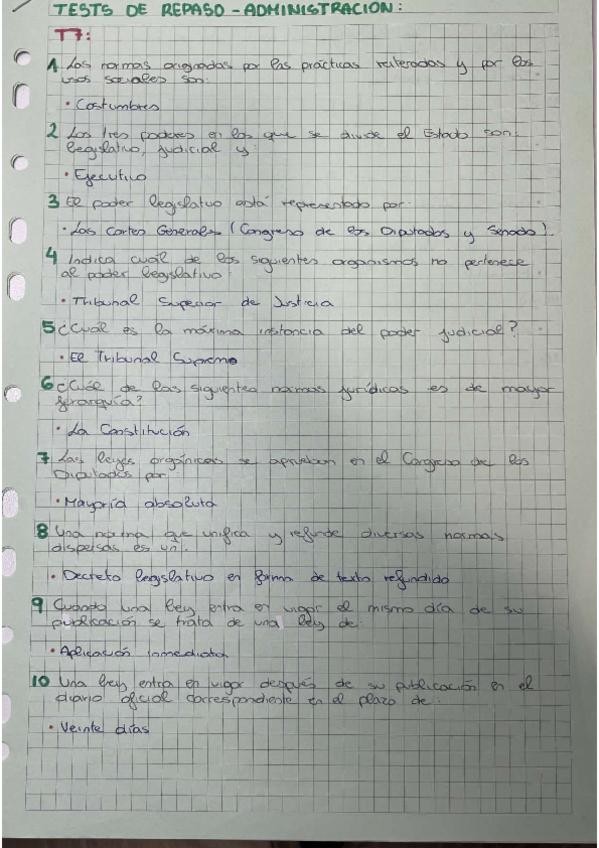 TESTS DE REPASO - ADMINISTRACIÓN:
T7:
1 Las normas originadas por las prácticas reiteradas y por los
usos sociales son:
• Costumbres
2 Los tres poderes en los que se divide el Estado son:
legislativo, judicial y:
• Ejecutivo
3 El poder legislativo está representado por:
• Las Cortes Generales (Congreso de los Diputados y Senado).
4 Indica cuál de los siguientes organismos no pertenece
al poder legislativo:
• Tribunal Superior de Justicia
5 ¿Cuál es la máxima instancia del poder judicial?
• El Tribunal Supremo
6 ¿Cuál de las siguientes normas jurídicas es de mayor
jerarquía?
• La Constitución
7 Las leyes orgánicas se aprueban en el Congreso de los
Diputados por:
• Mayoría absoluta
8 Una norma que unifica y refunde diversas normas
dispersas es un:
• Decreto legislativo en forma de texto refundido
9 Cuando una ley entra en vigor el mismo día de su
publicación se trata de una ley de:
• Aplicación inmediata
10 Una ley entra en vigor después de su publicación en el
diario oficial correspondiente en el plazo de:
• Veinte días